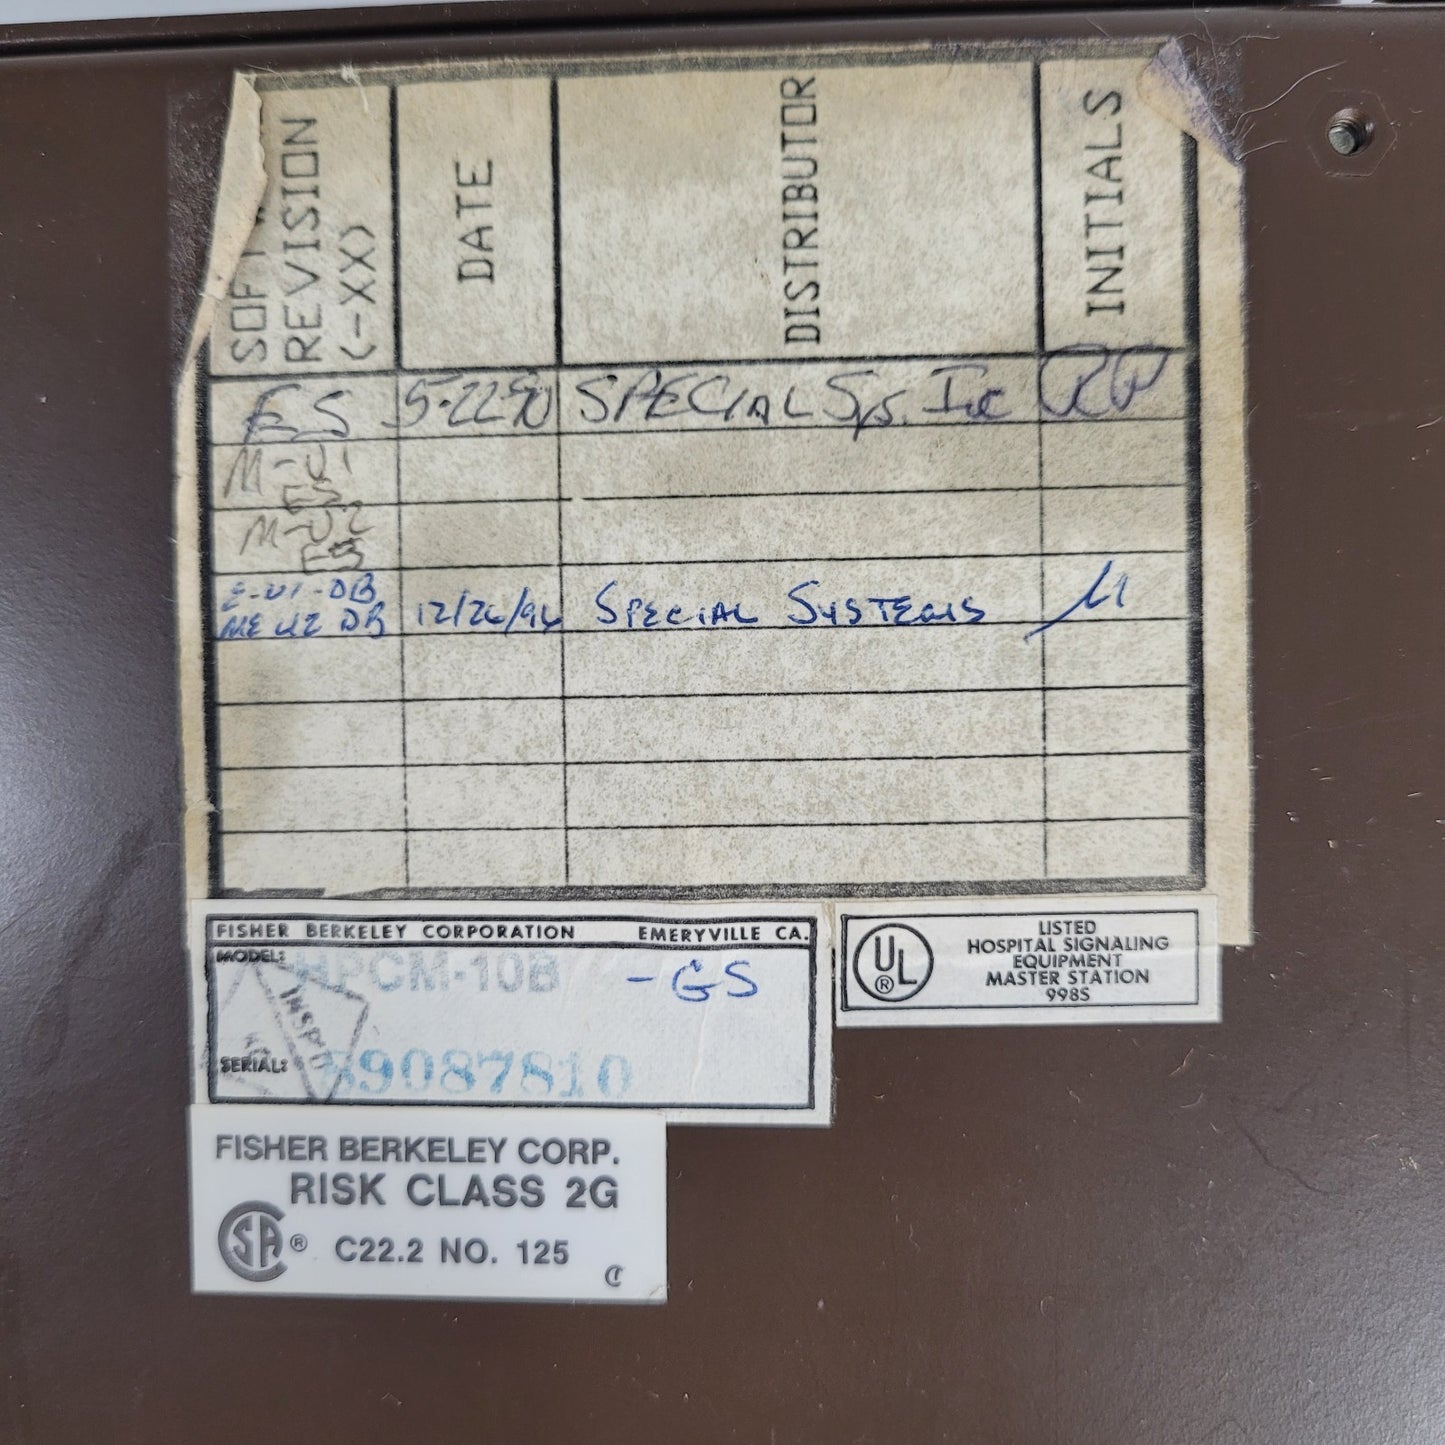 REVISION
(-XX)
DATE
DISTRIBUTOR
INITIALS
ES 5-22-90 SPECIAL Sys. Inc RP
M-U1
ES
M-U2
ES
E-U1-DB
ME U2 DB 12/26/96 SPECIAL SYSTEMS
FISHER BERKELEY CORPORATION EMERYVILLE CA.
MODEL: HPCM-10B -GS
SERIAL: 89087810
UL ®
LISTED
HOSPITAL SIGNALING
EQUIPMENT
MASTER STATION
998S
FISHER BERKELEY CORP.
RISK CLASS 2G
SA ® C22.2 NO. 125